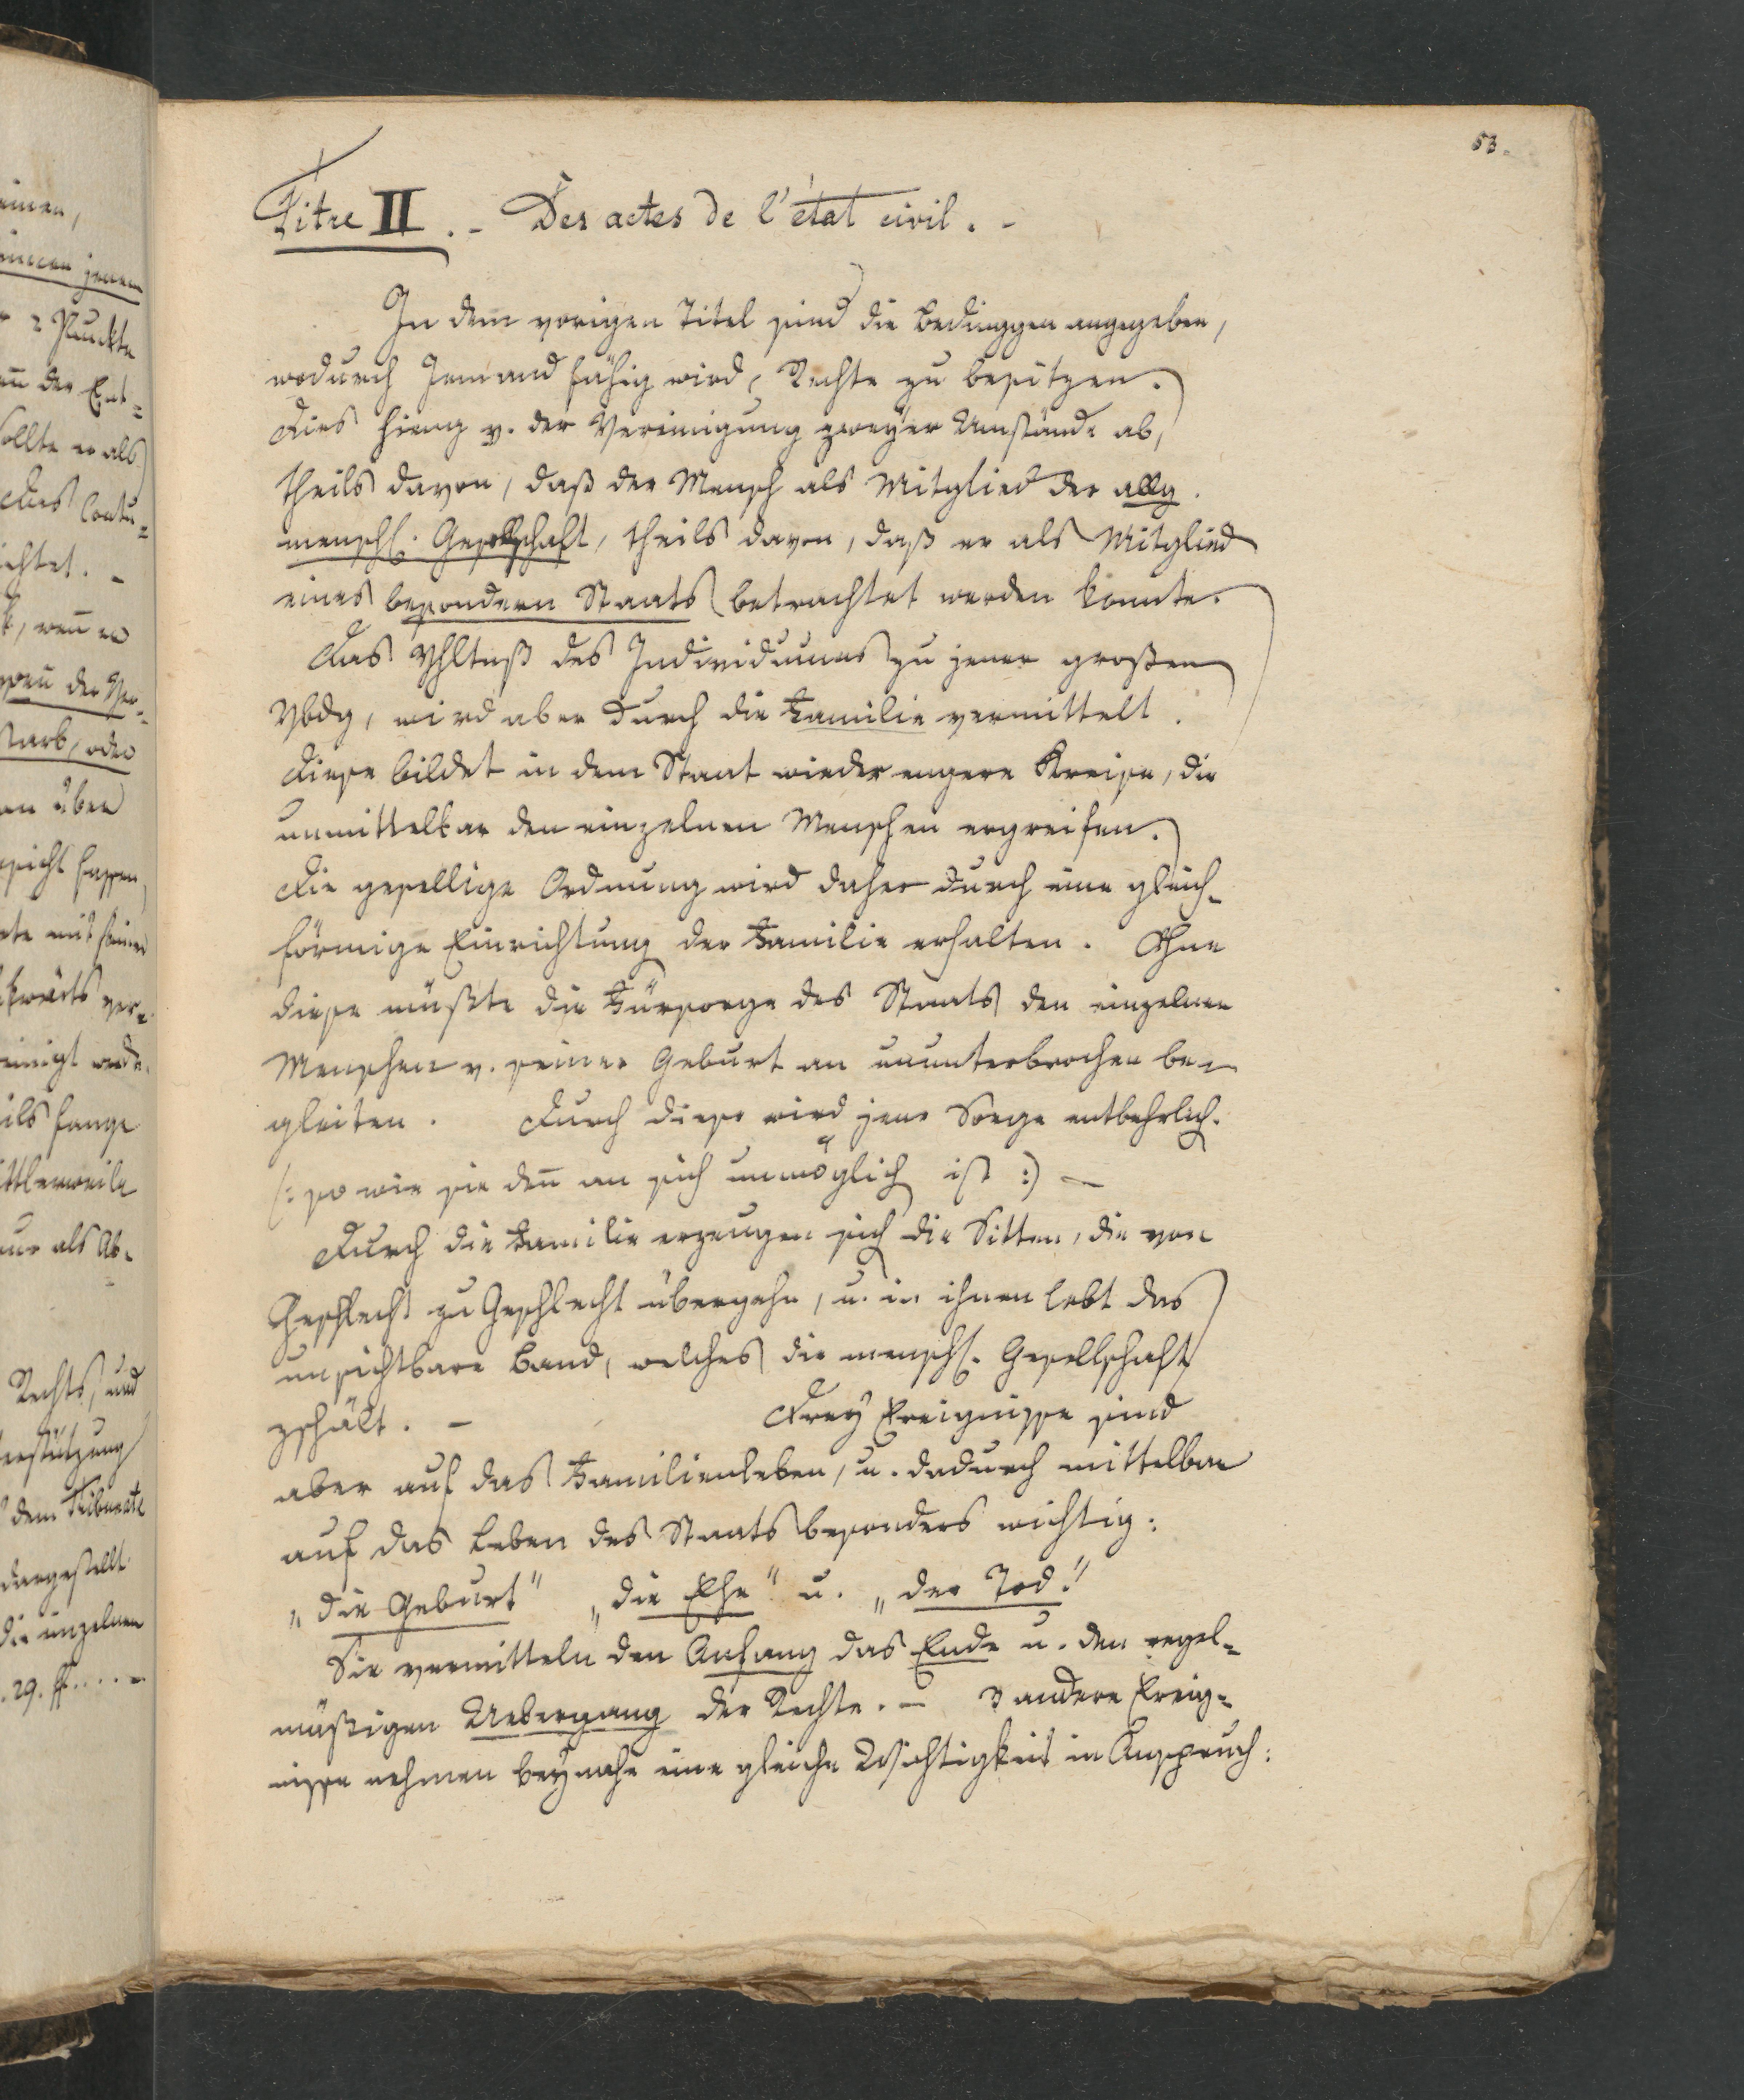 53.
Titre II. - Des actes de l'état civil. -
In dem vorigen Titel sind die Bedinggen angegeben,
wodurch Jemand fähig wird, Rechte zu besitzen.
Dies hieng v. der Vereinigung zweyer Umstände ab,
theils davon, daß der Mensch als Mitglied der allg.
menschl. Gesellschaft, theils davon, daß er als Mitglied
eines besondern Staats betrachtet werden konnte.
Das Vhltniß des Individuums zu jener großen
Vbdg, wird aber durch die Familie vermittelt.
Diese bildet in dem Staat wieder engere Kreise, die
unmittelbar den einzelnen Menschen ergreifen.
Die gesellige Ordnung wird daher durch eine gleich-
förmige Einrichtung der Familie erhalten. Ohne
diese müßte die Fürsorge des Staats den einzelnen
Menschen v. seiner Geburt an ununterbrochen be-
gleiten. Durch diese wird jene Sorge entbehrlich.
(: so wie sie den an sich unmöglich ist :) -
Durch die Familie erzeugen sich die Sitten, die von
Geschlecht zu Geschlecht übergehn, u. in ihnen lebt das
unsichtbare Band, welches die menschl. Gesellschaft
zshält. - Drey Ereignisse sind
aber auf das Familienleben, u. dadurch mittelbar
auf das Leben des Staats besonders wichtig:
„die Geburt" „die Ehe" u. „der Tod."
Sie vermitteln den Anfang das Ende u. den regel-
mäßigen Uebergang der Rechte. - 3 andere Ereig-
nisse nehmen beynahe eine gleiche Wichtigkeit in Anspruch: